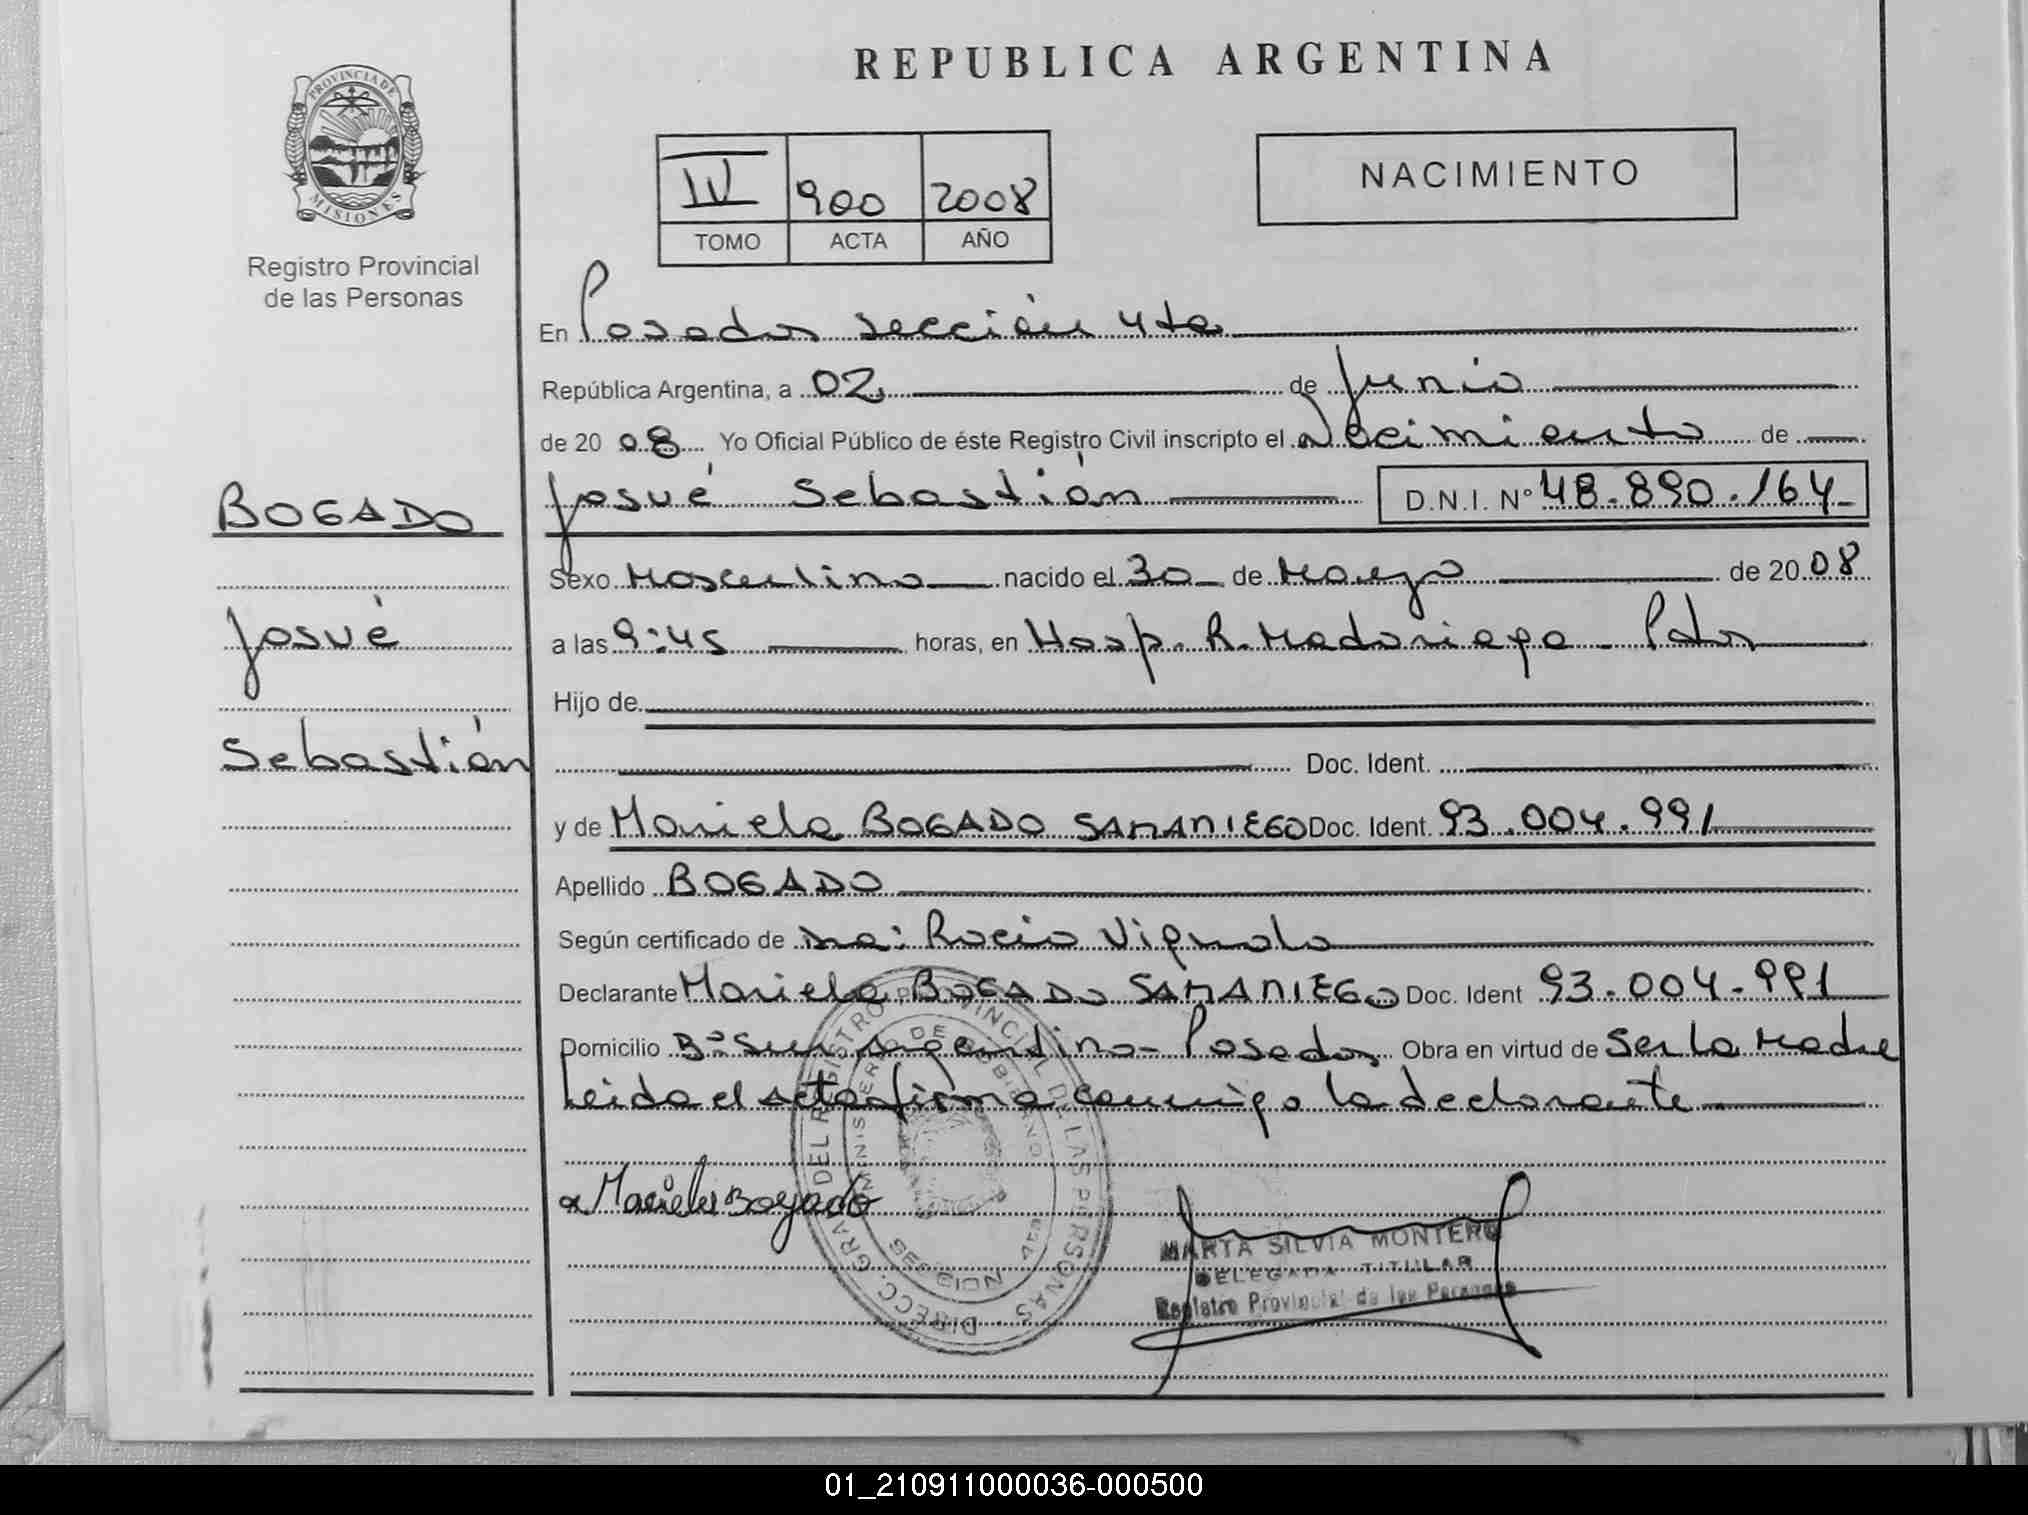 REPUBLICA ARGENTINA
PROVINCIA DE
MISIONES
Registro Provincial
de las Personas
IV 900 2008
TOMO ACTA AÑO
NACIMIENTO
En Posadas sección 4ta
República Argentina, a 02 de Junio
de 20 08 Yo Oficial Público de éste Registro Civil inscripto el Nacimiento de
Josué Sebastián D.N.I. N° 48.890.164
BOGADO
Josué
Sebastián
Sexo Masculino nacido el 30 de Marzo de 20 08
a las 9:45 horas, en Hosp. R. Madariaga - Pdas
Hijo de
Doc. Ident.
y de Mariela BOGADO SAMANIEGO Doc. Ident. 93.004.991
Apellido BOGADO
Según certificado de Dra: Rocio Vignolo
Declarante Mariela BOGADO SAMANIEGO Doc. Ident 93.004.991
Domicilio B° Sur Argentino - Posadas Obra en virtud de Ser la Madre
Leida el acta firma conmigo la declarante
Mariela Bogado
DIRECC. GRAL. DEL REGISTRO PROVINCIAL DE LAS PERSONAS
MINISTERIO DE GOBIERNO
SECCION 4ta
MARTA SILVIA MONTERO
DELEGADA TITULAR
Registro Provincial de las Personas
01_210911000036-000500